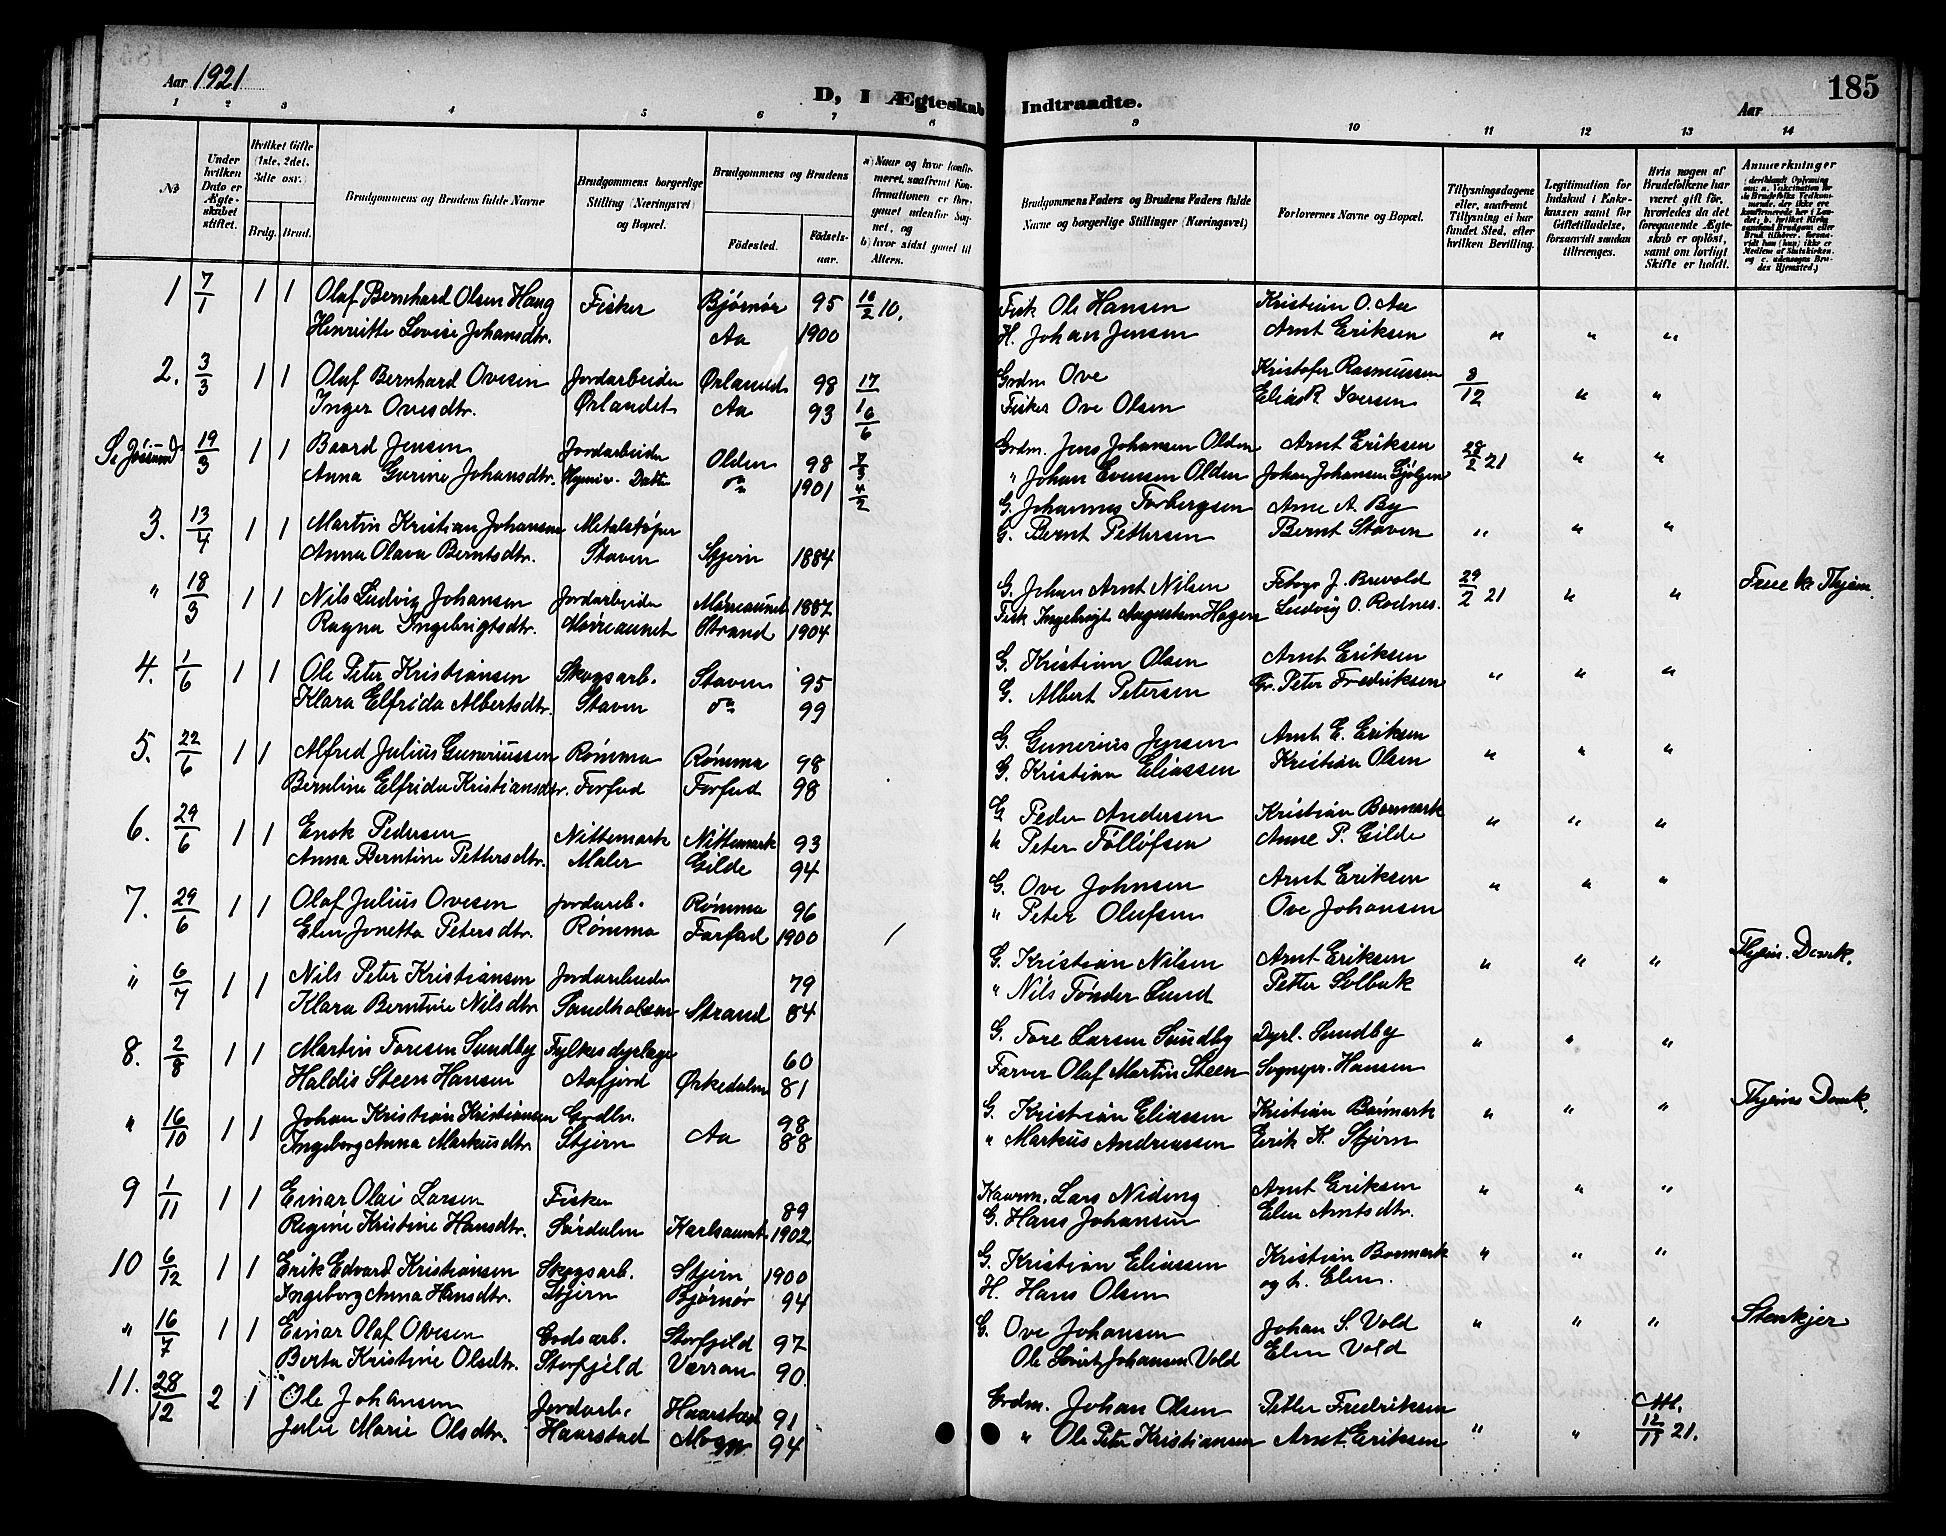 Aar 1921
D, I Ægteskab Indtraadte.
Aar
185
1 2 3 4 5 6 7 8 9 10 11 12 13 14
No
Under hvilken Dato er Ægteskabet stiftet.
Hvilket Gifte (1ste, 2det, 3die osv.)
Brdg. Brud.
Brudgommens og Brudens fulde Navne
Brudgommens borgerlige Stilling (Næringsvei) og Bopæl.
Brudgommens og Brudens
Fødested. Fødselsaar.
Brudgommens Faders og Brudens Faders fulde Navne og borgerlige Stillinger (Næringsvei)
Forlovernes Navne og Bopæl.
Tillysningsdagene eller, saafremt Tillysning ei har fundet Sted, efter hvilken Bevilling.
Legitimation for Indskud i Enkekassen samt for Giftetilladelse, forsaavidt saadan tiltrænges.
Hvis nogen af Brudefolkene har været gift før, hvorledes da det foregaaende Ægteskab er opløst, samt om lovligt Skifte er holdt.
Anmærkninger
1 7/1 1 1 Olaf Bernhard Olsen Haug Fisker Bjørnør 95 10/2 10. Fisk Ole Hansen Kristian O. Aa
Henriette Lovise Johansdtr. Aa 1900 H. Johan Jensen Arnt Eriksen " " "
2. 3/3 1 1 Olaf Bernhard Ovesen Jordarbeider Ørlandet 98 17 Grdm Ove Kristofer Rasmussen 8/12
Inger Ovesdtr. Ørlandet Aa 93 10/6 Fisker Ove Olsen Elias R. Iversen " "
Se Jøssund 19/3 1 1 Baard Jensen Jordarbeider Olden 98 7/3 Grdm. Jens Johansen Olden Arnt Eriksen 28/2 21 " "
Anna Gurine Johansdtr. Datter do 1901 4/2 " Johan Evensen Olden Johan Johansen Gjølgen
3. 13/4 1 1 Martin Kristian Johansen Metalstøper G. Johannes Torbergsen Arne A. By
Anna Olava Berntsdtr. Staven Stjern 1884 G. Bernt Pettersen Bernt Staven " " "
" 18/3 1 1 Nils Ludvig Johansen Jordarbeider Morreaunet 1887 G. Johan Arnt Nilsen J. Brevold 29/2 21 " "
Ragna Ingebrigtsdtr. Morreaunet Strand 1904 Fisk Ingebrigt Augustsen Hagen Ludvig O. Rødnes.
4. 1/6 1 1 Ole Peter Kristiansen Skogsarb. Staven 95 G. Kristian Olsen Arnt Eriksen
Klara Elfrida Albertsdtr. Staven do 99 G. Albert Petersen Gr. Peter Fredriksen " " "
5. 22/6 1 1 Alfred Julius Guneriussen Rømma Rømma 98 G. Gunerius Jensen Arnt E. Eriksen
Berntine Elfrida Kristiansdtr. Forfod Forfod 98 G. Kristian Eliassen Kristian Olsen " " "
6. 29/6 1 1 Enok Pedersen Nittemark Nittemark 93 G Peder Andersen Kristian Barmark
Anna Berntine Pettersdtr. Maler Gilde 94 " Peter Tølløfsen Anne P. Gilde " " "
7. 29/6 1 1 Olaf Julius Ovesen Jordarb. Rømma 96 G. Ove Johnsen Arnt Eriksen
Elen Jonetta Petersdtr. Rømma Forfod 1900 " Peter Olufsen Ove Johansen " " "
" 6/7 1 1 Nils Peter Kristiansen Jordarbeider 79 G. Kristian Nilsen Arnt Eriksen " " "
Klara Berntine Nilsdtr. Strand 84 " Nils Tønder Lund Petter Solbak
8. 2/8 1 1 Martin Toresen Sundby Fylkesdyrlæge 60 G. Tore Larsen Sundby Dyrl. Sundby
Haldis Steen Hansen Aafjord Ørkedalen 81 Farver Olaf Martin Steen Sognepr. Hansen " " "
" 16/10 1 1 Johan Kristian Kristiansen Godtr. Aa 98 G. Kristian Eliassen Kristian Barmark " " "
Ingeborg Anna Markusdtr. Stjern 88 " Markus Andreassen Erik K. Stjern
9 1/11 1 1 Einar Olai Larsen Fisker 89 Lars Niding Arnt Eriksen
Regine Kristine Hansdtr. Sørdalen Karlsaunet 1902 G. Hans Johansen Elen Arntsdtr. " " "
10 6/12 1 1 Erik Edvard Kristiansen Skogsarb. Stjern 1900 G. Kristian Eliassen Kristian Barmark " " "
Ingeborg Anna Hansdtr. Stjern Bjørnør 94 H. Hans Olsen og h. Elen.
" 16/7 1 1 Einar Olaf Ovesen Godsarb. Storfjeld 97 G. Ove Johansen Johan S. Vold " " " Stenkjer
Berta Kristine Olsdtr. Storfjeld Værran 90 Ole Sivert Johansen Vold Elen Vold
11. 28/12 2 1 Ole Johansen Jordarb. Haarstad 91 Grdm. Johan Olsen Petter Fredriksen
Julie Marie Olsdtr. Haarstad 94 " Ole Peter Kristiansen Arnt Eriksen " " 12/11 21.